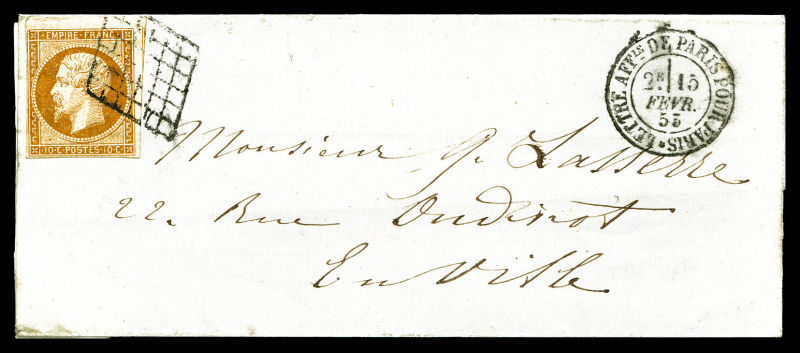 EMPIRE FRANC
10·C·POSTES·10·C·
LETTRE AFFIE DE PARIS POUR PARIS
2E 15
FEVR.
55
Monsieur G. Lasserre
22. Rue Oudinot
En Ville